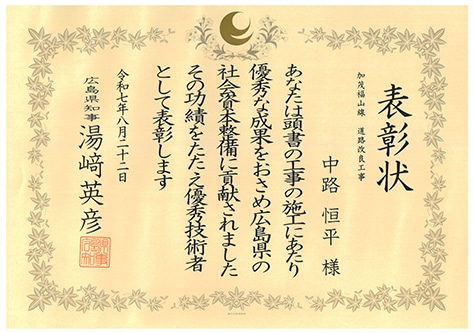 表彰状
加茂福山線 道路改良工事
中路 恒平 様
あなたは頭書の工事の施工にあたり
優秀な成果をおさめ広島県の
社会資本整備に貢献されました
その功績をたたえ優秀技術者
として表彰します
令和七年八月二十二日
広島県知事 湯﨑英彦